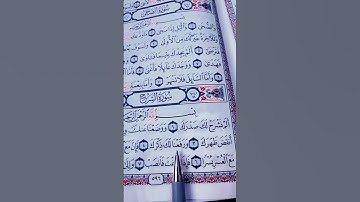 سُورَةُ الضُّحَىٰ
وَٱلضُّحَىٰ ١ وَٱلَّيْلِ إِذَا سَجَىٰ ٢ مَا وَدَّعَكَ
وَلَلْأٓخِرَةُ خَيْرٌ لَّكَ مِنَ ٱلْأُولَىٰ ٤ وَلَسَوْفَ
فَتَرْضَىٰٓ ٥ أَلَمْ يَجِدْكَ يَتِيمًا فَـَٔاوَىٰ ٦
فَهَدَىٰ ٧ وَوَجَدَكَ عَآئِلًا فَأَغْنَىٰ ٨
١٠ وَأَمَّا ٱلسَّآئِلَ فَلَا تَنْهَرْ ١٠ وَأَمَّا بِنِعْمَةِ
سُورَةُ الشَّرْحِ
بِسْمِ ٱللَّهِ ٱلرَّحْمَٰنِ ٱلرَّحِيمِ
أَلَمْ نَشْرَحْ لَكَ صَدْرَكَ ١ وَوَضَعْنَا عَنكَ
أَنقَضَ ظَهْرَكَ ٣ وَرَفَعْنَا لَكَ ذِكْرَكَ ٤ فَإِنَّ مَعَ
مَعَ ٱلْعُسْرِ يُسْرًا ٦ فَإِذَا فَرَغْتَ فَٱنصَبْ
٥٩٦